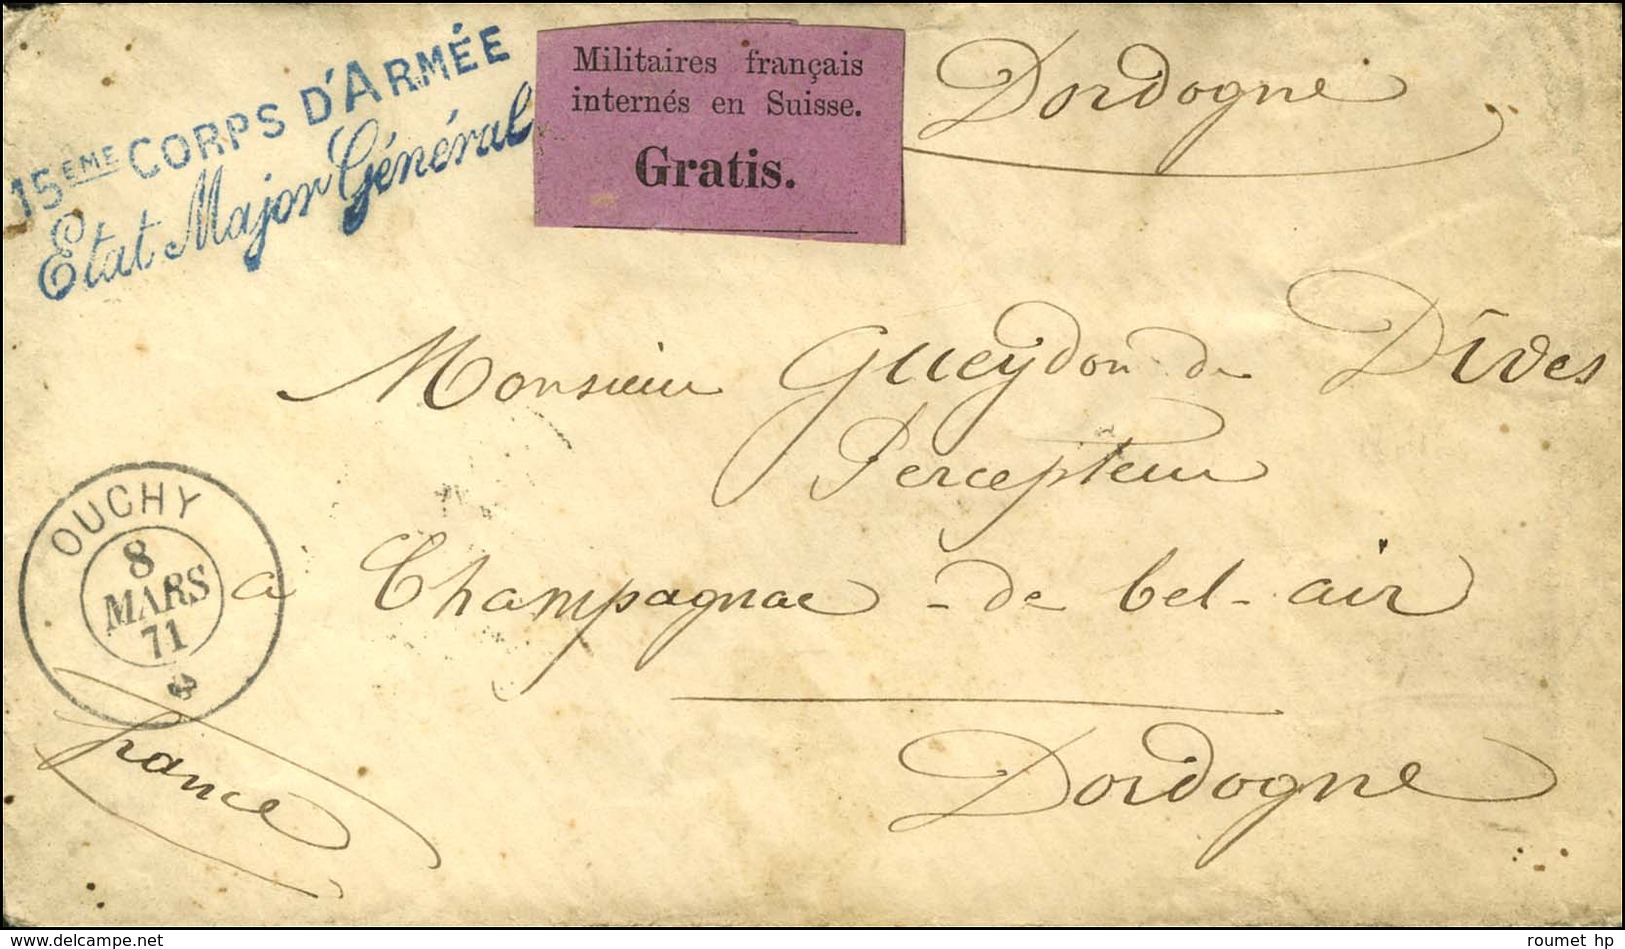 15EME CORPS D'ARMÉE
Etat Major Général
Militaires français
internés en Suisse.
Gratis.
Dordogne
Monsieur Gueydon de Dives
Percepteur
à Champagnac-de bel-air
Dordogne
OUCHY
8
MARS
71
France
delcampe.net
roumet hp